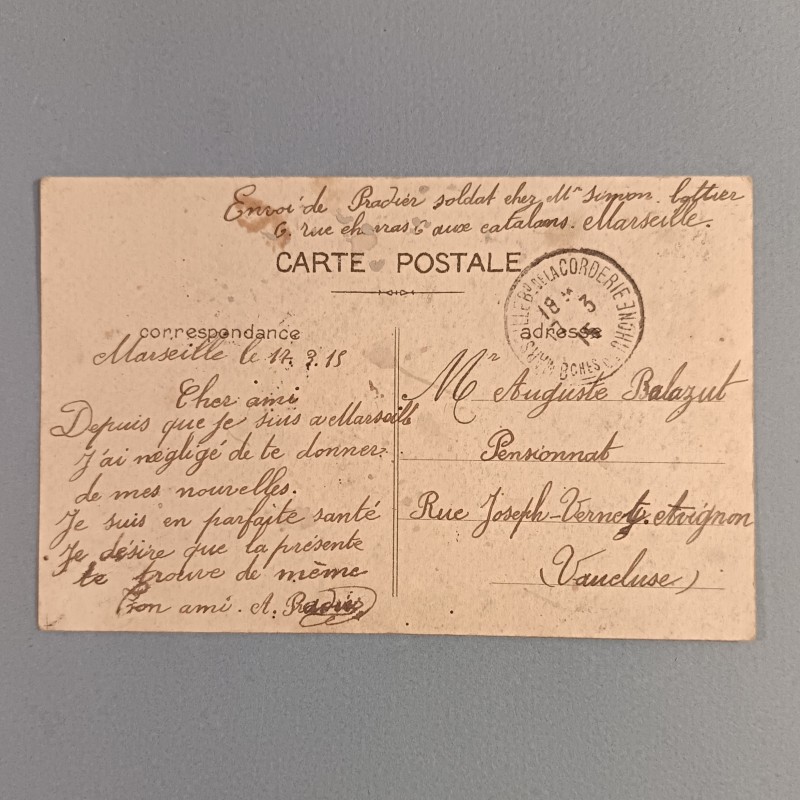 Envoi de Pradier soldat cher Mr Simon. lottier
6. rue chivas 6 aux catalans. Marseille.
CARTE POSTALE
correspondance
Marseille le 14.3.15
Cher ami
Depuis que je suis a Marseille
J'ai négligé de te donner
de mes nouvelles.
Je suis en parfaite santé
Je désire que la présente
te trouve de même
Ton ami. A. Pradier
DE LA CORDERIE
18
3
15
BCHES
adresse
Mr Auguste Balazut
Pensionnat
Rue Joseph-Vernet, Avignon
(Vaucluse)